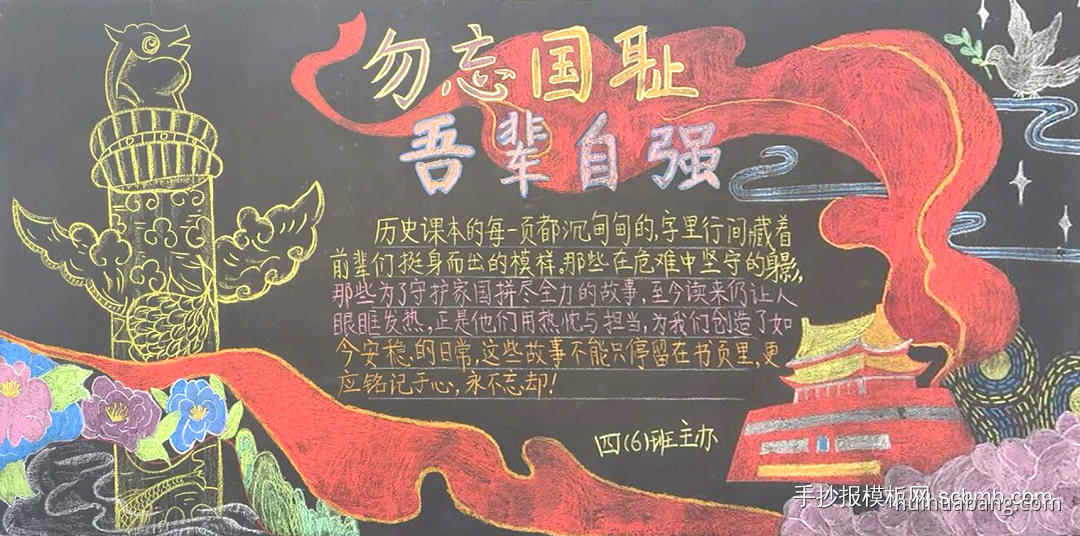 勿忘国耻
吾辈自强
历史课本的每一页都沉甸甸的,字里行间藏着
前辈们挺身而出的模样。那些在危难中坚守的身影,
那些为了守护家国拼尽全力的故事,至今读来仍让人
眼眶发热,正是他们用热忱与担当,为我们创造了如
今安稳.的日常,这些故事不能只停留在书页里,更
应铭记于心,永不忘却!
四(6)班主办
手抄报模板网 scbmh.com
huihuabang.com